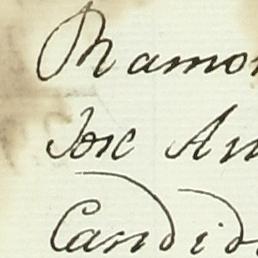 Ramon
Jose An
Candido